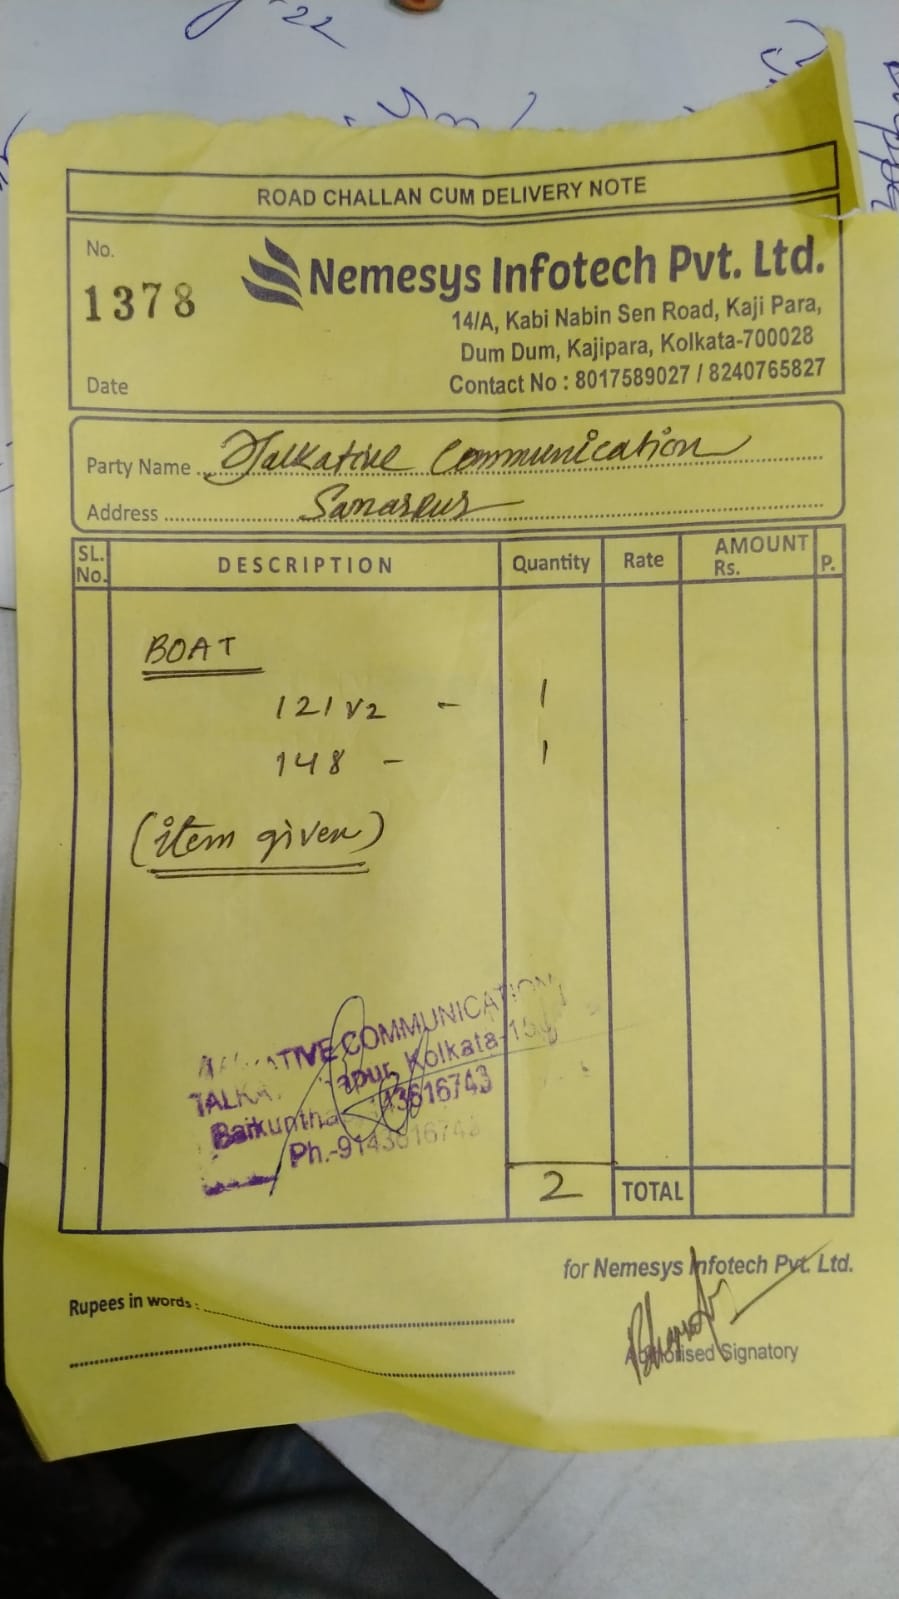 22
ROAD CHALLAN CUM DELIVERY NOTE
No.
1378
Nemesys Infotech Pvt. Ltd.
14/A, Kabi Nabin Sen Road, Kaji Para,
Dum Dum, Kajipara, Kolkata-700028
Contact No : 8017589027 / 8240765827
Date
Party Name Talkative Communication
Address Sonarpur
SL. No. DESCRIPTION Quantity Rate AMOUNT Rs. P.
BOAT
121 V2 - 1
148 - 1
(item given)
TALKATIVE COMMUNICATION
Kolkata-
Ph.-9143616743
2 TOTAL
for Nemesys Infotech Pvt. Ltd.
Rupees in words :
Authorised Signatory